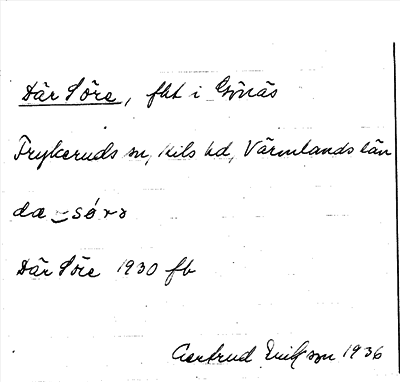 Där Söre, fht i Grönäs
Frykeruds sn, Kils hd, Värmlands län
dæ sørə
Där Söre 1930 fb
Gertrud Erikson 1936